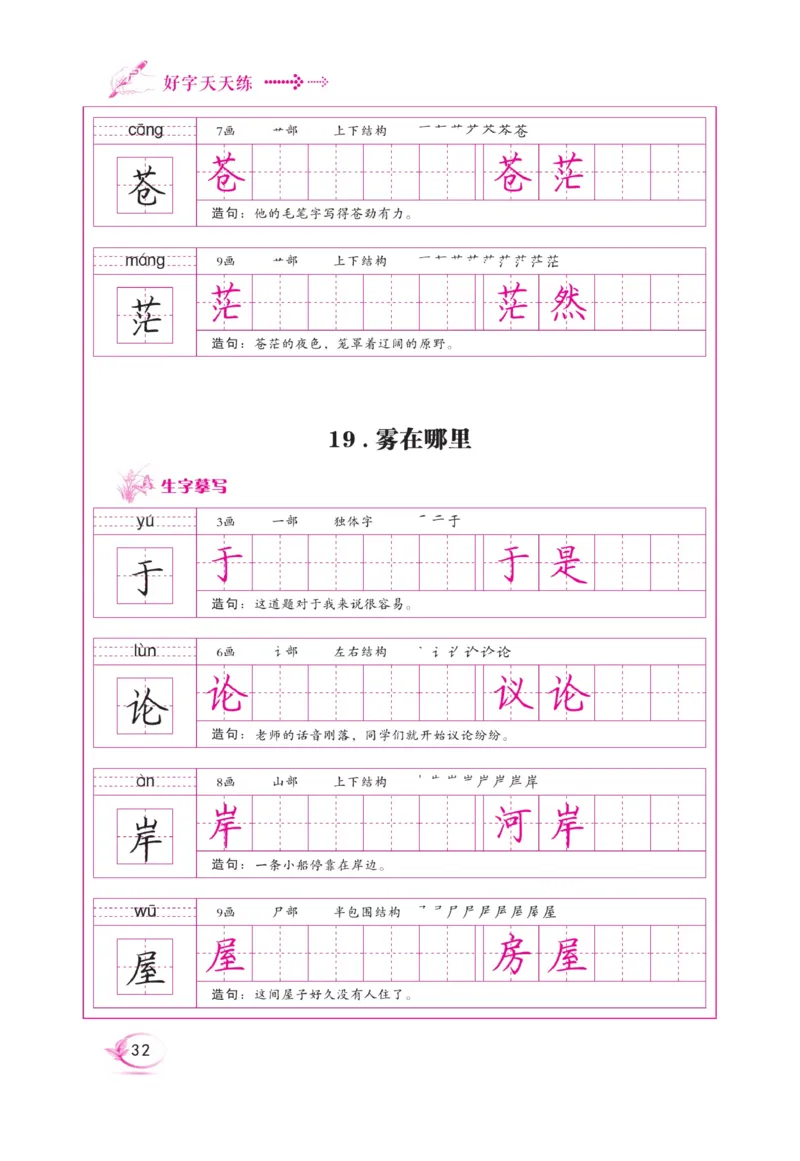 好字天天练
cāng 7画 艹部 上下结构 一 十 艹 艹 艾 苍 苍
苍 苍 苍 茫
造句：他的毛笔字写得苍劲有力。
máng 9画 艹部 上下结构
茫 茫 茫 然
造句：苍茫的夜色，笼罩着辽阔的原野。
19.雾在哪里
生字摹写
yú 3画 一部 独体字 一 二 于
于 于 于 是
造句：这道题对于我来说很容易。
lùn 6画 讠部 左右结构
论 论 议 论
造句：老师的话音刚落，同学们就开始议论纷纷。
àn 8画 山部 上下结构
岸 岸 河 岸
造句：一条小船停靠在岸边。
wū 9画 尸部 半包围结构
屋 屋 房 屋
造句：这间屋子好久没有人住了。
32